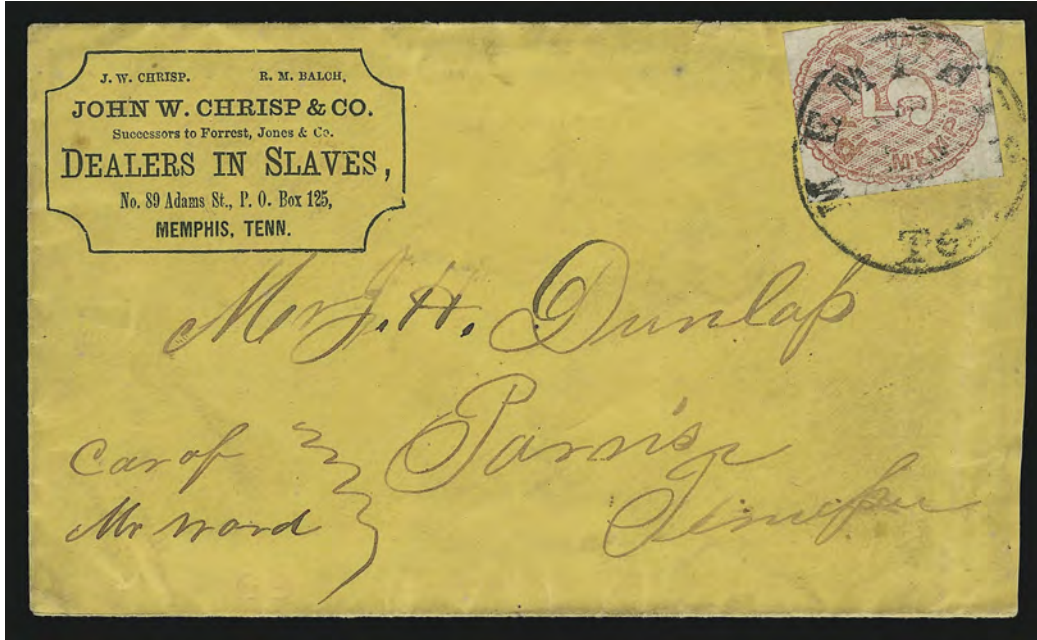 J. W. CHRISP. R. M. BALCH,
JOHN W. CHRISP & CO.
Successors to Forrest, Jones & Co.
DEALERS IN SLAVES,
No. 89 Adams St., P. O. Box 125,
MEMPHIS, TENN.
5
MEMPHIS
MEMPH
Mr J. H. Dunlap
Parris
Car of
Mr Word